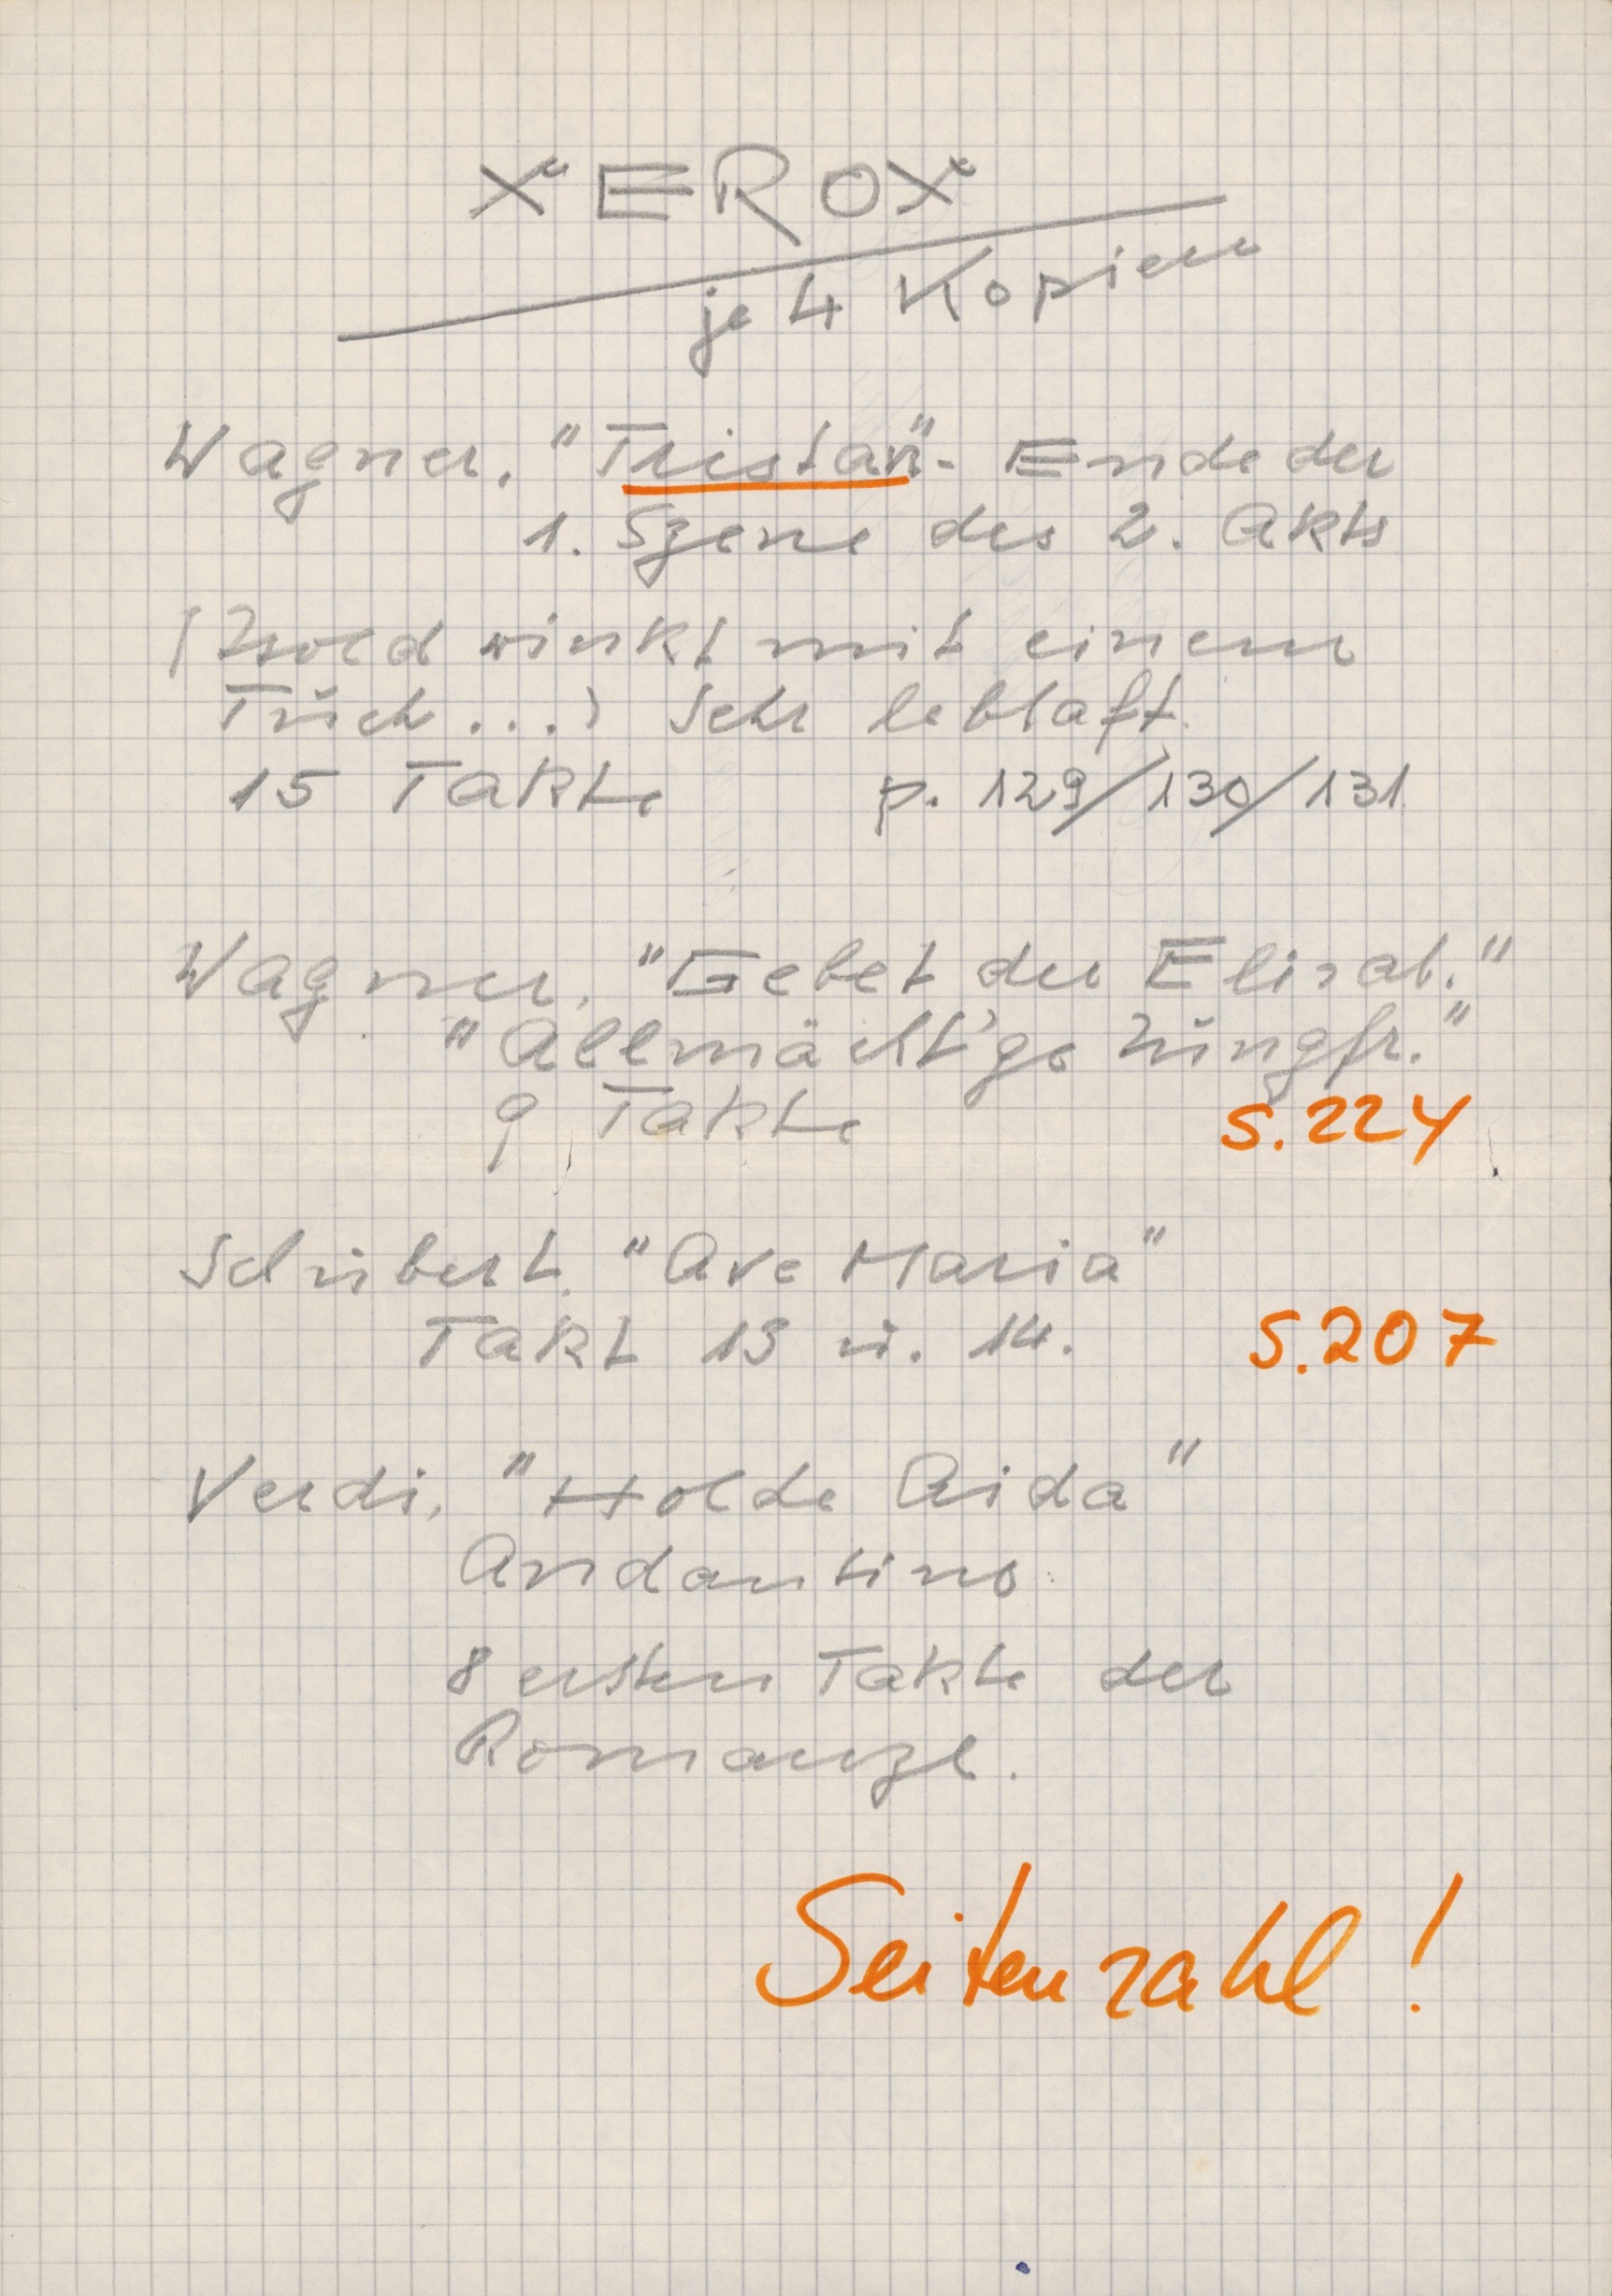 XEROX
je 4 Kopien
Wagner, "Tristan" - Ende der
1. Szene des 2. Akts
(Isold winkt mit einem
Tuch...) Sehr lebhaft
15 Takte p. 129/130/131
Wagner, "Gebet der Elisab."
"Allmächt'ge Jungfr."
9 Takte S. 224
Schubert, "Ave Maria"
Takt 13 u. 14. S. 207
Verdi, "Holde Aida"
Andantino
8 ersten Takte der
Romanze.
Seitenzahl!